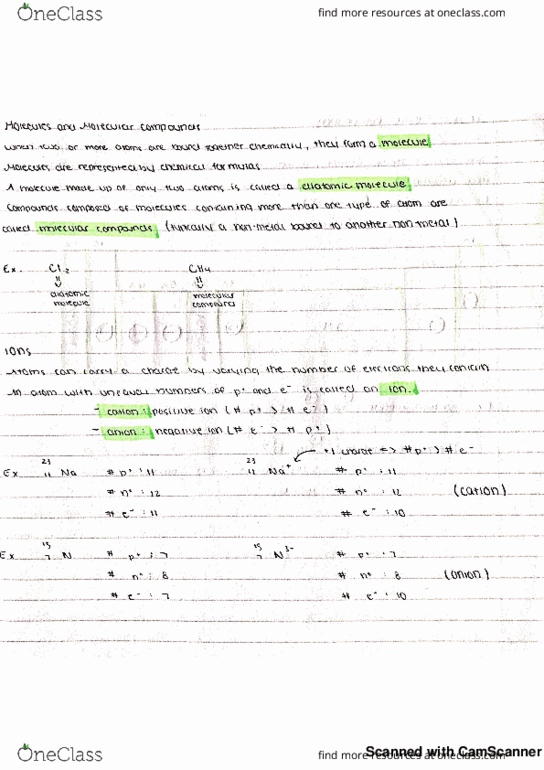 OneClass find more resources at oneclass.com
Molecules and Molecular compounds
When two or more atoms are bound together chemically, they form a molecule.
Molecules are represented by chemical formulas
A molecule made up of only two atoms is called a diatomic molecule.
Compounds composed of molecules containing more than one type of atom are
called molecular compounds. (typically a non-metal bound to another non-metal)
Ex. Cl₂ CH₄
⇓ ⇓
diatomic molecular
molecule compound
Ions
Atoms can carry a charge by varying the number of electrons they contain
An atom with unequal numbers of p⁺ and e⁻ is called an ion.
- cation : positive ion (# p⁺ > # e⁻)
- anion : negative ion (# e⁻ > # p⁺)
+1 charge => # p⁺ > # e⁻
Ex ²³₁₁ Na # p⁺ : 11 ²³₁₁ Na⁺ # p⁺ : 11
# n° : 12 # n° : 12 (cation)
# e⁻ : 11 # e⁻ : 10
Ex ¹⁵₇ N # p⁺ : 7 ¹⁵₇ N³⁻ # p⁺ : 7
# n° : 8 # n° : 8 (anion)
# e⁻ : 7 # e⁻ : 10
OneClass find more resources at oneclass.com
Scanned with CamScanner